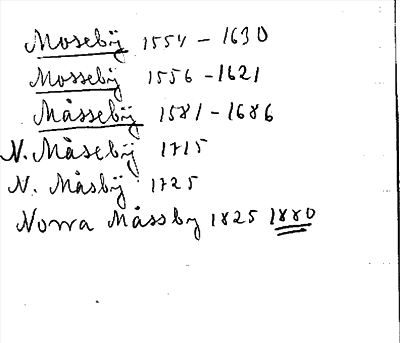 Mosebÿ 1554 - 1630
Mossebÿ 1556 - 1621
Måssebÿ 1581 - 1686
N. Måsebÿ 1715
N. Måsbÿ 1725
Norra Måssby 1825 1880